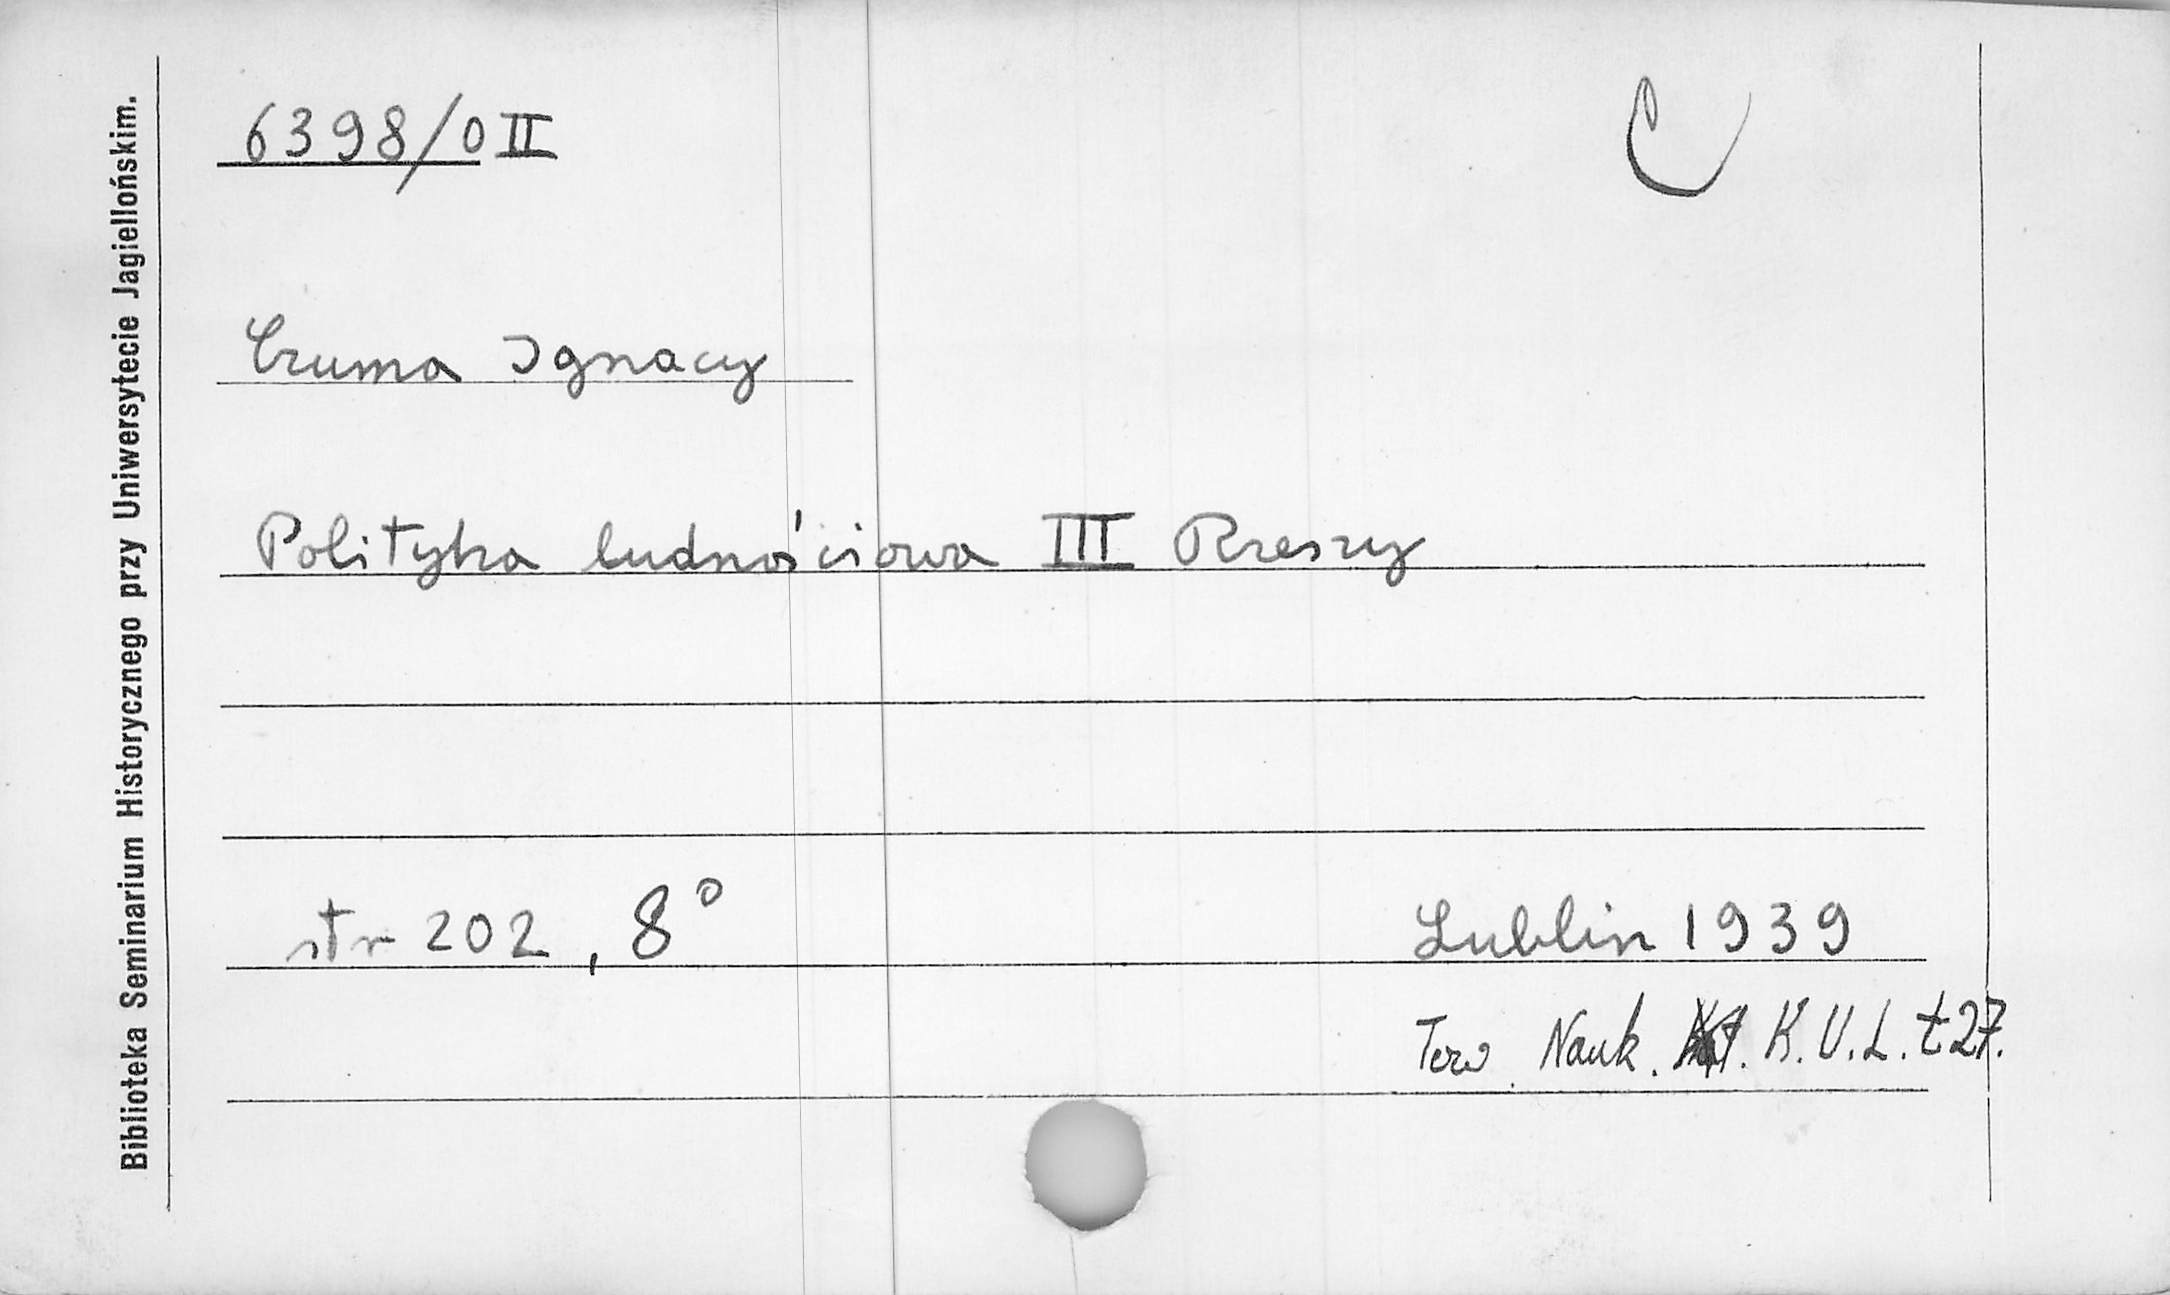 Biblioteka Seminarium Historycznego przy Uniwersytecie Jagiellońskim.
6398/0 II
C
Czuma Ignacy
Polityka ludnościowa III Rzeszy
str 202, 8°
Lublin 1939
Tow. Nauk. K.U.L. t 27.